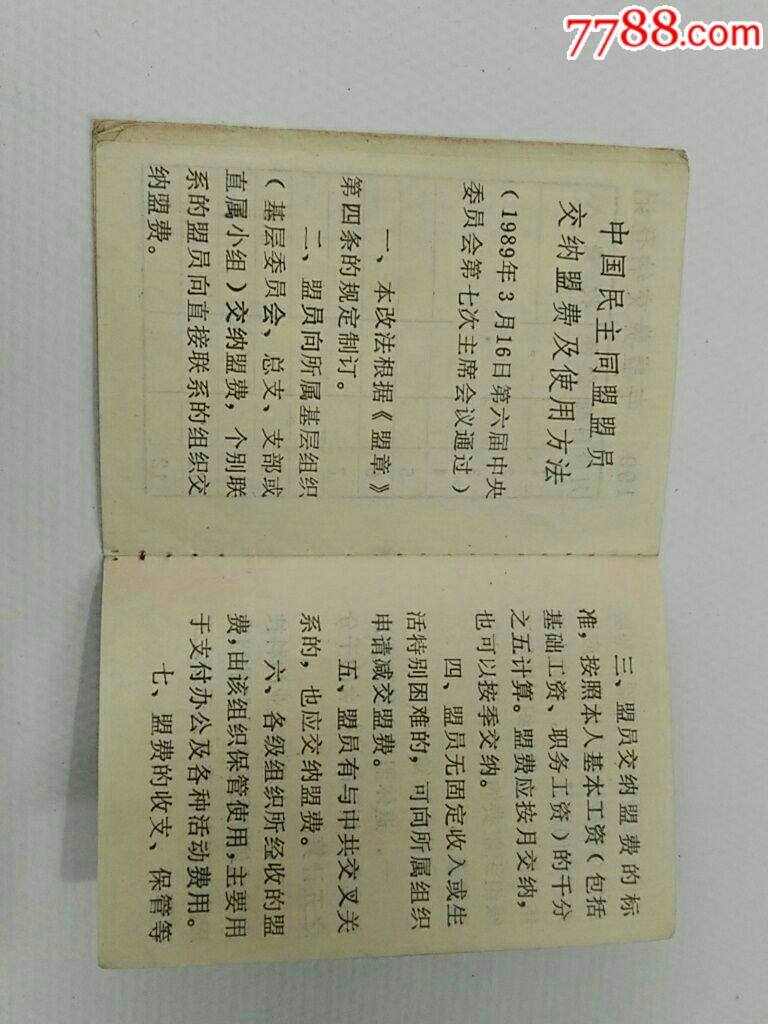 7788.com
中国民主同盟盟员
交纳盟费及使用方法
（1989年3月16日第六届中央
委员会第七次主席会议通过）
一、本改法根据《盟章》
第四条的规定制订。
二、盟员向所属基层组织
（基层委员会、总支、支部或
直属小组）交纳盟费，个别联
系的盟员向直接联系的组织交
纳盟费。
三、盟员交纳盟费的标
准，按照本人基本工资（包括
基础工资、职务工资）的千分
之五计算。盟费应按月交纳，
也可以按季交纳。
四、盟员无固定收入或生
活特别困难的，可向所属组织
申请减交盟费。
五、盟员有与中共交叉关
系的，也应交纳盟费。
六、各级组织所经收的盟
费，由该组织保管使用，主要用
于支付办公及各种活动费用。
七、盟费的收支、保管等